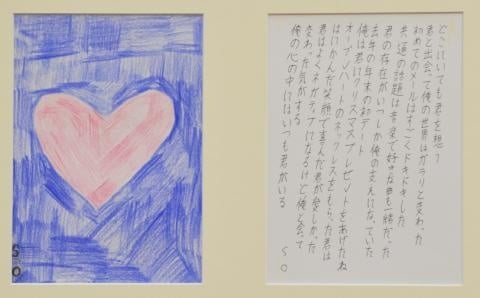 どこにいても君を想う
君と出会って俺の世界はガラリと変わった
初めてのメールはすごくドキドキした
共通の話題は音楽で好きな曲も一緒だった
君の存在がいつしか俺の支えになっていた
去年の年末の初デート
俺は君にクリスマスプレゼントをあげたね
オープンハートのネックレスをもらった君は
はにかんだ笑顔で喜んだ君が愛しかった
君はよくネガティブになるけど俺と会って
変わった気がする
俺の心の中にはいつも君がいる
SO
SO